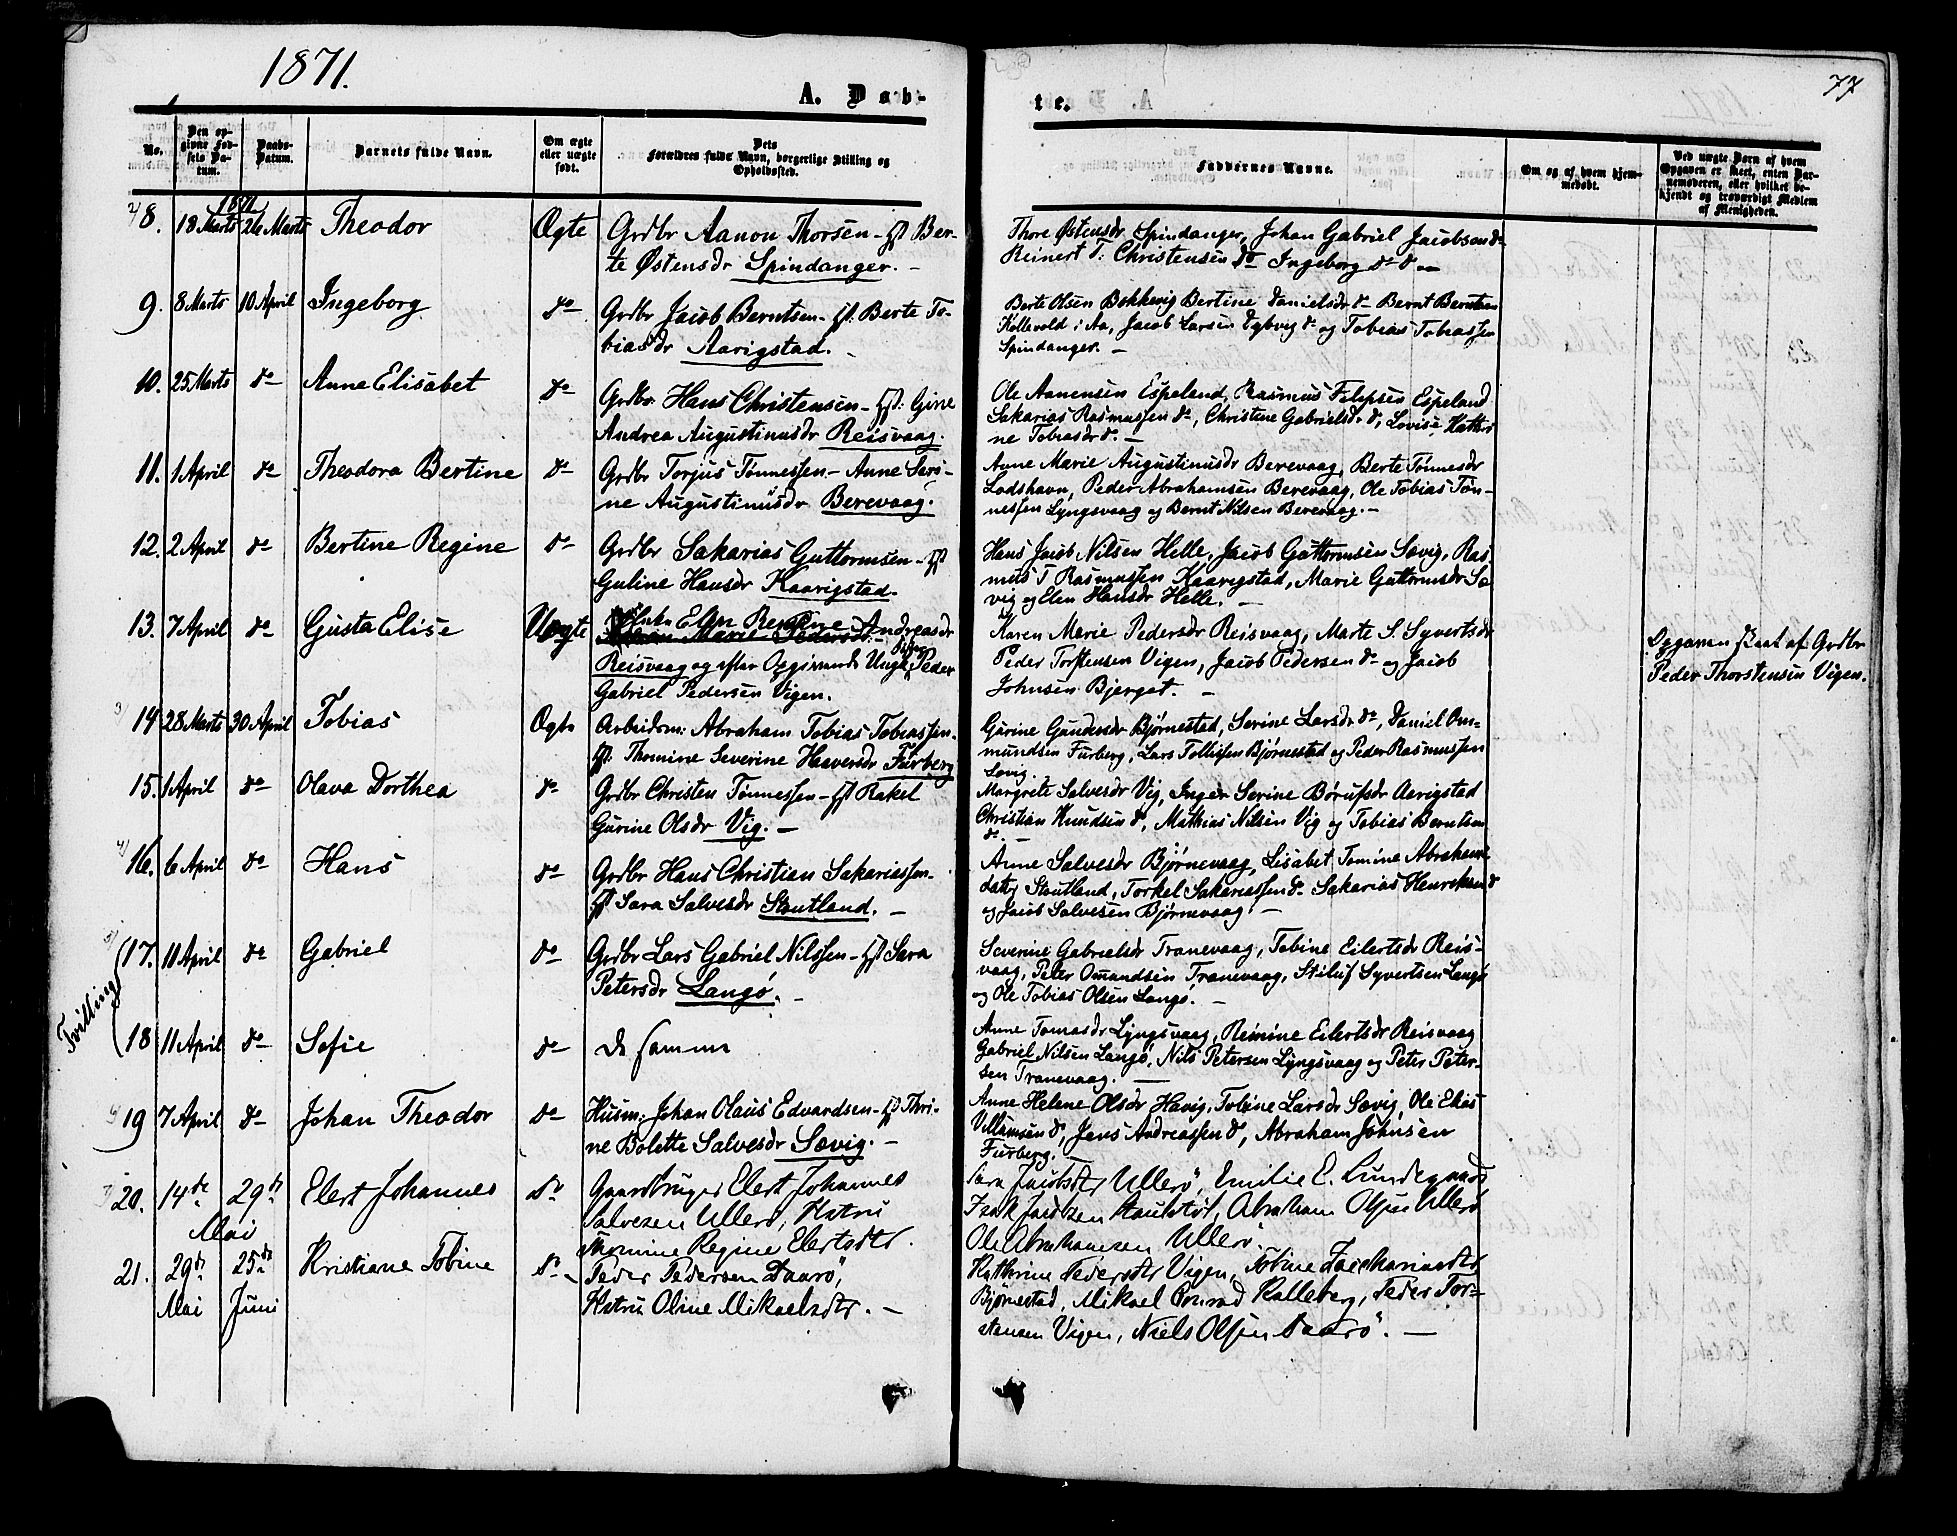 1871.
77
A. Døb-
te.
No.
Den op-
givne Fød-
sels Da-
tum.
Daabs-
Datum.
Barnets fulde Navn.
Om ægte
eller uægte
født.
Dets
Forældres fulde Navn, borgerlige Stilling og
Opholdssted.
Faddernes Navne.
Om og af hvem hjem-
medøbt.
Ved uægte Børn af hvem
Opgaven er skeet, enten Bar-
nemoderen, eller hvilket be-
kjendt og troværdigt Medlem
af Menigheden.
1871
8. 18 Marts 26 Marts Theodor Ægte Grdbr Aanon Thorsen - Hst Ber-
te Østensdr Spindanger. -
Thore Østensdr Spindanger, Johan Gabriel Jacobsen do
Reinert T. Christensen do Ingeborg do
9. 8 Marts 10 April Ingeborg do Grdbr Jacob Berntsen - Hst. Berte To-
biasdr Aarigstad. -
Berte Olsen Bokkevig Bertine Danielsdr do Bernt Berntsen
Kollevold i Aa, Jacob Larsen Dybvig do og Tobias Tobiassen
Spindanger. -
10. 25 Marts do Anne Elisabet do Grdbr Hans Christensen - Hst: Gine
Andrea Augustinusdr Reisvaag.
Ole Aanensen Espeland, Rasmus Filipsen Espeland
Sakarias Rasmussen do, Christine Gabrielsdr do, Lovise Kathri
ne Tobiasdr do. -
11. 1 April do Theodora Bertine do Grdbr Torjus Tønnessen - Anne Seri-
ne Augustinusdr Berevaag.
Anne Marie Augustinusdr Berevaag, Berte Tønnesdr
Lodshavn, Peder Abrahamsen Berevaag, Ole Tobias Tøn-
nessen Lyngsvaag og Bernt Nilsen Berevaag. -
12. 2 April do Bertine Regine do Grdbr Sakarias Guttormsen - Hst
Guline Hansdr Kaarigstad.
Hans Jacob Nilsen Helle, Jacob Guttormsen Sævig, Ras
mus T Rasmussen Kaarigstad, Marie Guttormsdr Sæ
vig og Elen Hansdr Helle. -
13. 7 April do Gusta Elise Uægte Pike Elen Regine Andreasdr
Karen Marie Pedersdr
Reisvaag og efter Opgivende Ungk Peder
Gabriel Pedersen Vigen.
Karen Marie Pedersdr Reisvaag, Marte S. Syvertsdr
Peder Torstensen Vigen, Jacob Pedersen do og Jacob
Johnsen Bjerget. -
Opgaven skeet af Grdbr
Peder Thorstensen Vigen.
14 28 Marts 30 April Tobias Ægte Arbeidsm: Abraham Tobias Tobiassen.
Hst. Thomine Severine Haaversdr Furberg
Gurine Gundersdr Bjørnestad, Serine Larsdr do, Daniel Om-
mundsen Furberg, Lars Tollissen Bjørnestad og Peder Rasmussen
15. 1 April do Olava Dorthea do Grdbr Christen Tønnessen - Hst Rakel
Gurine Olsdr Vig. -
Margrete Salvesdr Vig, Inger Serine Børufsdr Aarigstad
Christian Knudsen do, Mathias Nilsen Vig og Tobias Berntsen
do. -
16. 6 April do Hans do Grdbr Hans Christian Sakariassen -
Hst Sara Salvesdr Stoutland. -
Anne Salvesdr Bjørnevaag, Lisabet Tomine Abrahams
dater Stoutland, Torkel Sakariassen do Sakarias Henriksen do
og Jacob Salvesen Bjørnevaag. -
Tvilling
17. 11 April do Gabriel do Grdbr Lars Gabriel Nilssen - Hst Sara
Petersdr Langø. -
Severine Gabrielsdr Tranevaag, Tobine Eilertsdr Reis-
vaag, Peter Omundsen Tranevaag, Stiluf Syvertsen Langø
og Ole Tobias Olsen Langø. -
18 11 April do Sofie do De samme
Anne Tomasdr Lyngsvaag, Reinine Eilertsdr Reisvaag
Gabriel Nilsen Langø, Nils Petersen Lyngsvaag og Peter Peter-
sen Tranevaag. -
19 7 April do Johan Theodor do Husm: Johan Olaus Edvardsen - Hst Thri-
ne Bolette Salvesdr Sævig. -
Anne Helene Olsdr Havig, Tobine Larsdr Sævig, Ole Elias
Villumsen do, Jens Andreassen do, Abraham Johnsen
Furberg. -
20. 14de Mai 29de Elert Johannes do Gaardbruger Elert Johannes
Salvesen Ullerø, Hstru
Thomine Regine Elertsdtr.
Sara Jacobsdtr Ullerø, Emilie E. Lundegaard
Isak Jacobsen Staulstøl, Abraham Olsen Ullerø
Ole Abrahamsen Ullerø.
21. 29de Mai 25de Juni Kristiane Tobine do Peder Pedersen Daarø,
Hstru Oline Mikaelsdtr. -
Kathrine Pedersdtr Vigen, Tobine Zachariasdtr
Bjørnestad, Mikael Conrad Kalleberg, Peder Tor-
stensen Vigen, Niels Olsen Daarø. -